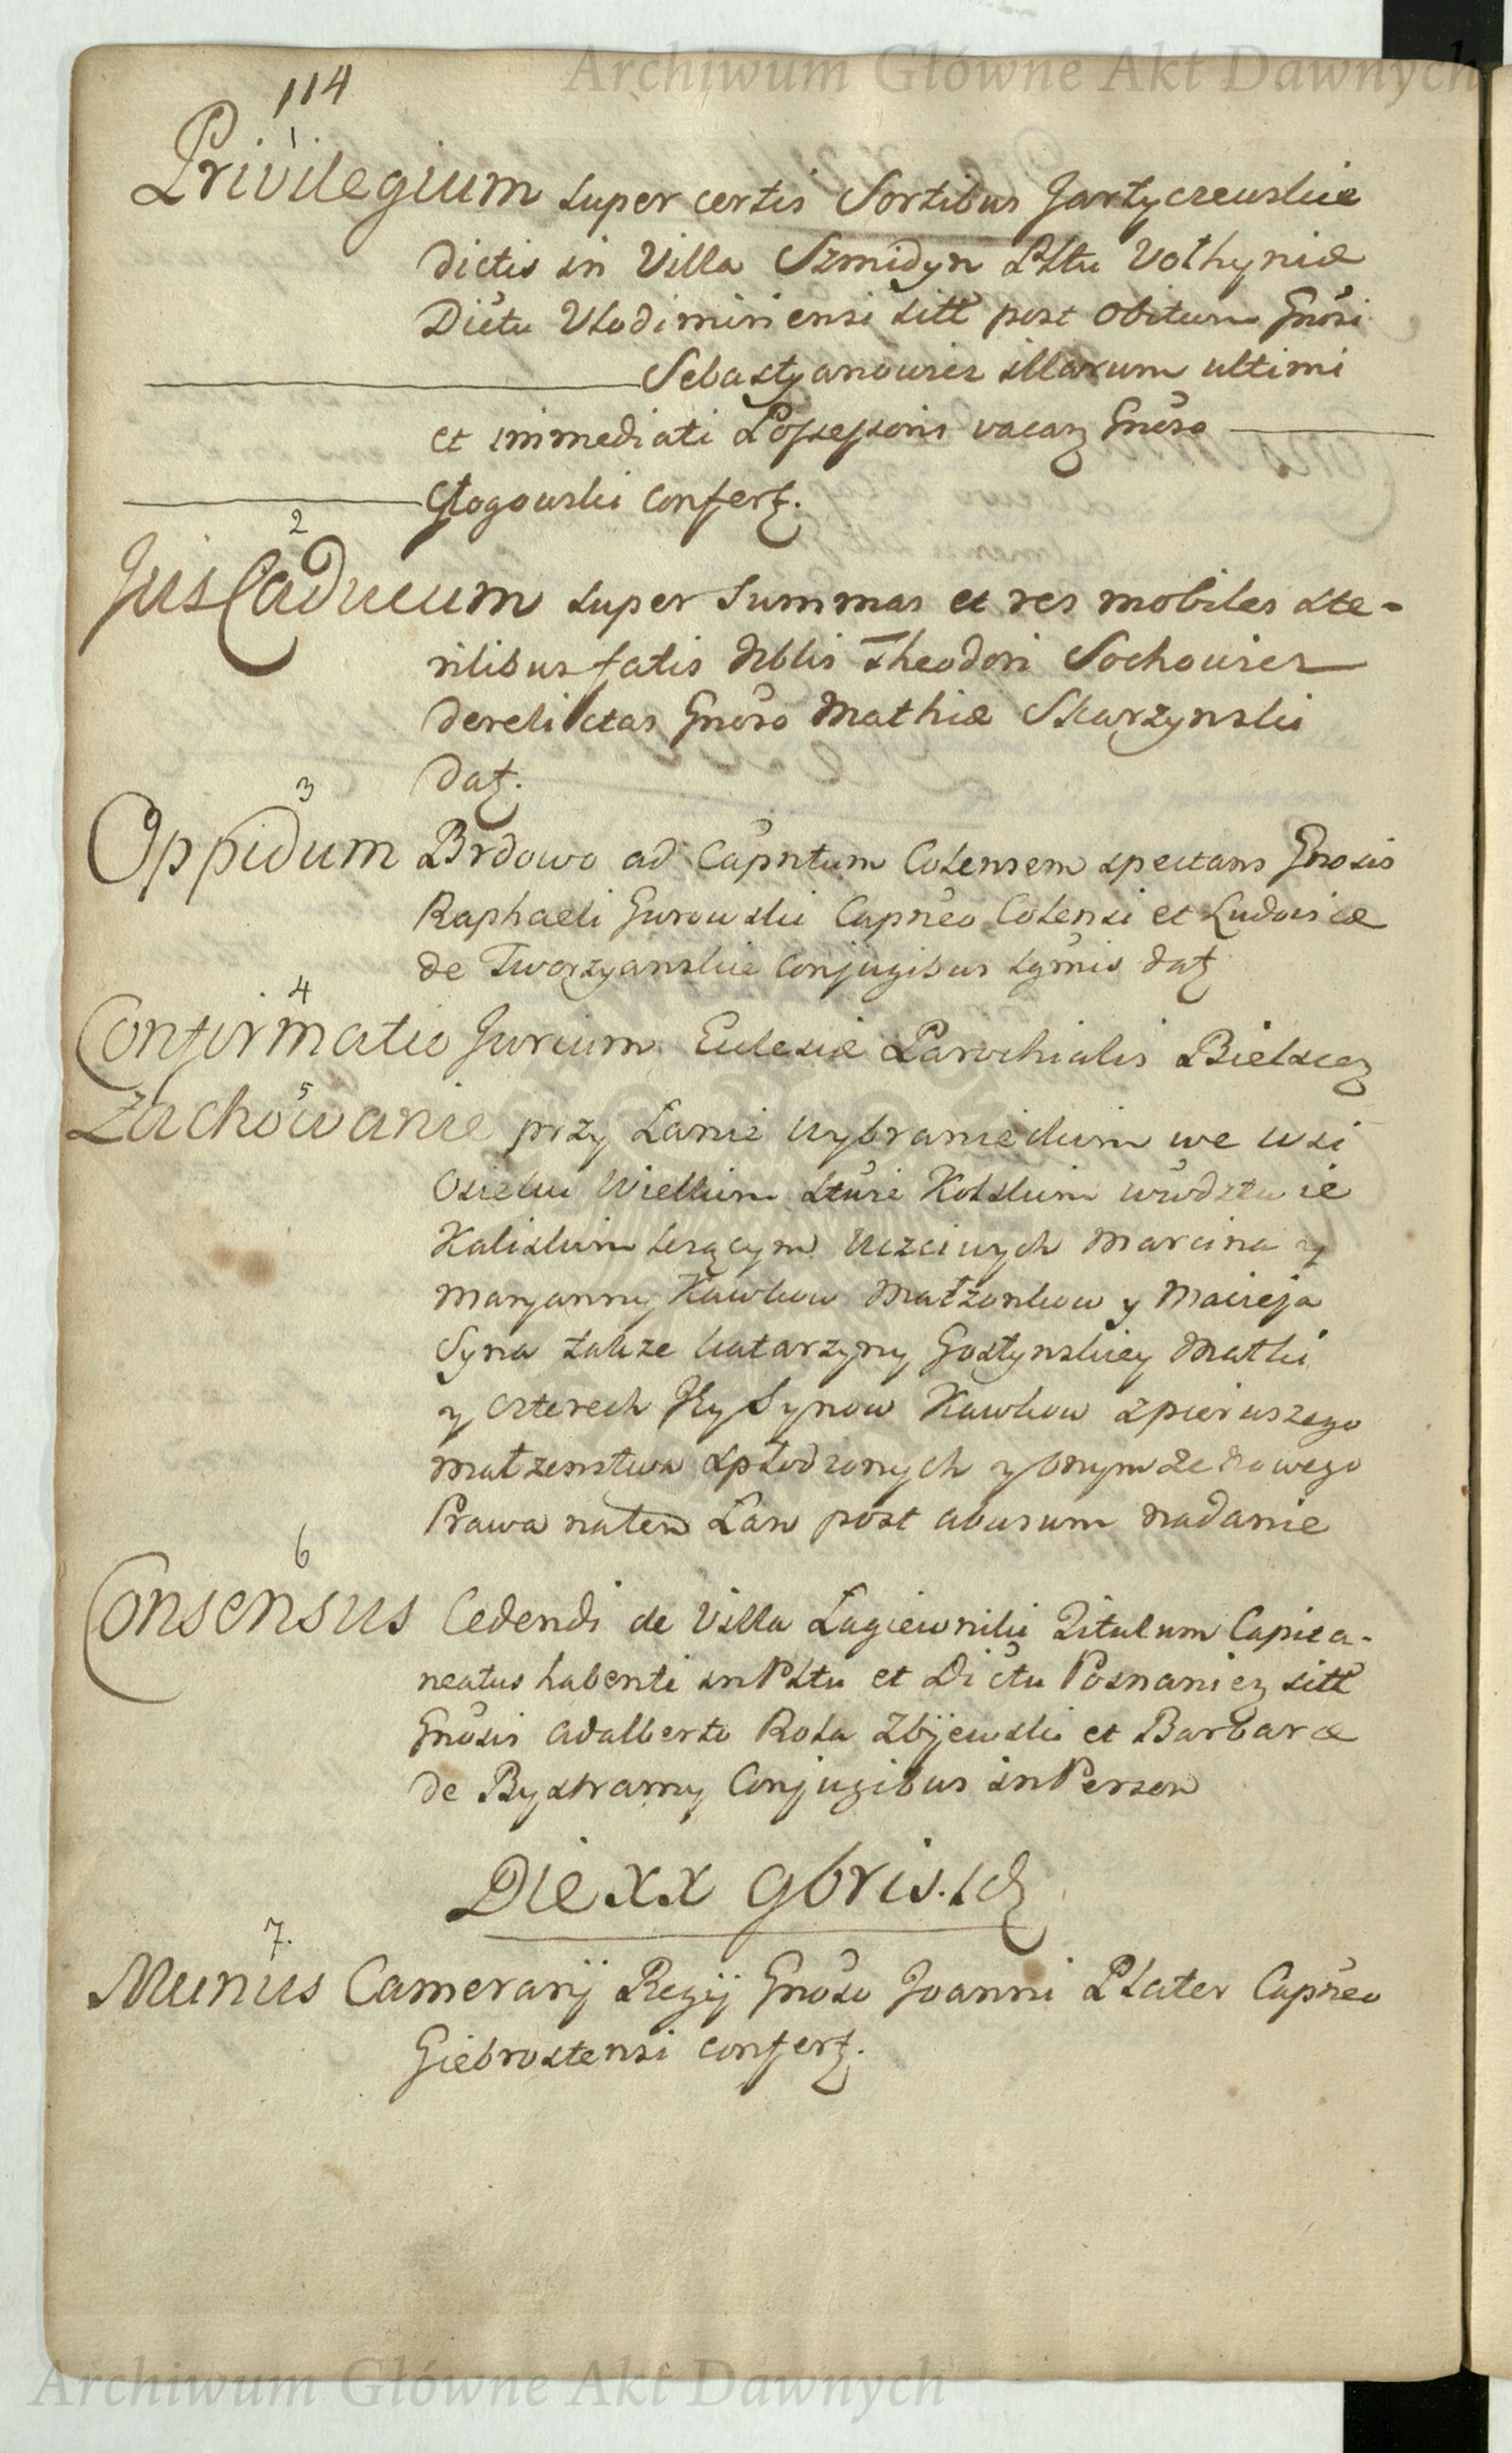 Archiwum Główne Akt Dawnych
114
1
Privilegium super certis Sortibus Jartyczewskie
dictis in Villa Szmidyn Pttu Volhyniæ
Dictu Vlodimiriensi sitt post obitum Gnosi
Sebastyanowicz illarum ultimi
et immediati Possessoris vacaŋ Gnoso
Głogowski Conferŧ.
2
Jus Caducum super Summas et res mobiles ste-
rilibus fatis Nblis Theodori Sochowicz
derelictas Gnoso Mathiæ Skarzynski
daŧ.
3
Oppidum Brdowo ad Capntum Colensem spectans Gnosis
Raphaeli Gurowski Capneo Colensi et Ludovicæ
de Tworzyanskie Conjugibus sgmis daŧ
4
Confirmatio Jurium Eclesiæ Parochialis Bielscez
5
Zachowanie przy Łanie Wybranieckim we wsi
Osieku Wielkim Sttwie Kolskim wwdztwie
Kaliskim lezącym Uczciwych Marcina y
Maryanny Kawkow Małzonkow y Macieja
Syna takze Katarzyny Gostynskiey Matki
y czterech Jey Synow Kawkow zpierwszego
małzenstwa spłodzonych y onymze nowego
Prawa naten Łan post abusum nadanie
6
Consensus Cedendi de Villa Lagiewniki Titulum Capita-
neatus habenti in Pttu et Dictu Posnaniez sitt
Gnosis Adalberto Rola Zbijewski et Barbaræ
de Bystramy Conjugibus in Person
Die XX 9bris. Ej
7.
Munus Camerarij Regij Gnoso Joanni Plater Capneo
Giebrostensi conferŧ.
Archiwum Główne Akt Dawnych